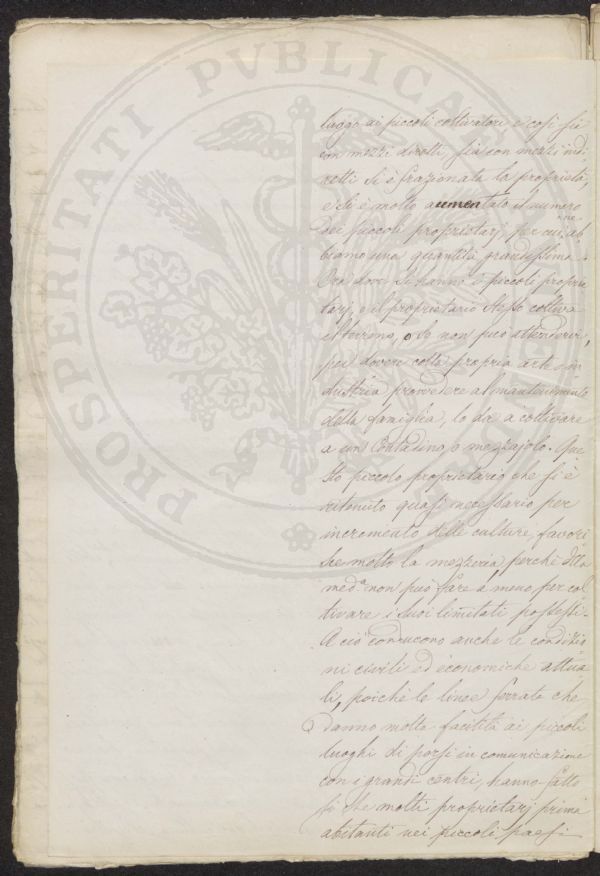 PROSPERITATI PVBLICAE
luogo ai piccoli coltivatori, e così sia
con mezzi diretti, sia con mezzi indi
retti si è frazionata la proprietà,
e si è molto aumentato il numero
dei piccoli proprietarj, per cui ne ab
biamo una quantità grandissima.
Ora dove si hanno i piccoli proprie
tarj, o il proprietario stesso coltiva
il terreno, o se non può attendervi,
per dovere colla propria arte o in
dustria provvedere al mantenimento
della famiglia, lo da a coltivare
a un Contadino, o mezzajolo. Que
sto piccolo proprietario che si è
ritenuto quasi necessario per
incremento delle culture, favori
sce molto la mezzeria, perchè della
med.a non può fare a meno per col
tivare i suoi limitati possessi.
A ciò conducono anche le condizio
ni civili ed economiche attua
li, poichè le linee ferrate che
danno molta facilità ai piccoli
luoghi di porsi in comunicazione
con i grandi centri, hanno fatto
sì che molti proprietarj prima
abitanti nei piccoli paesi